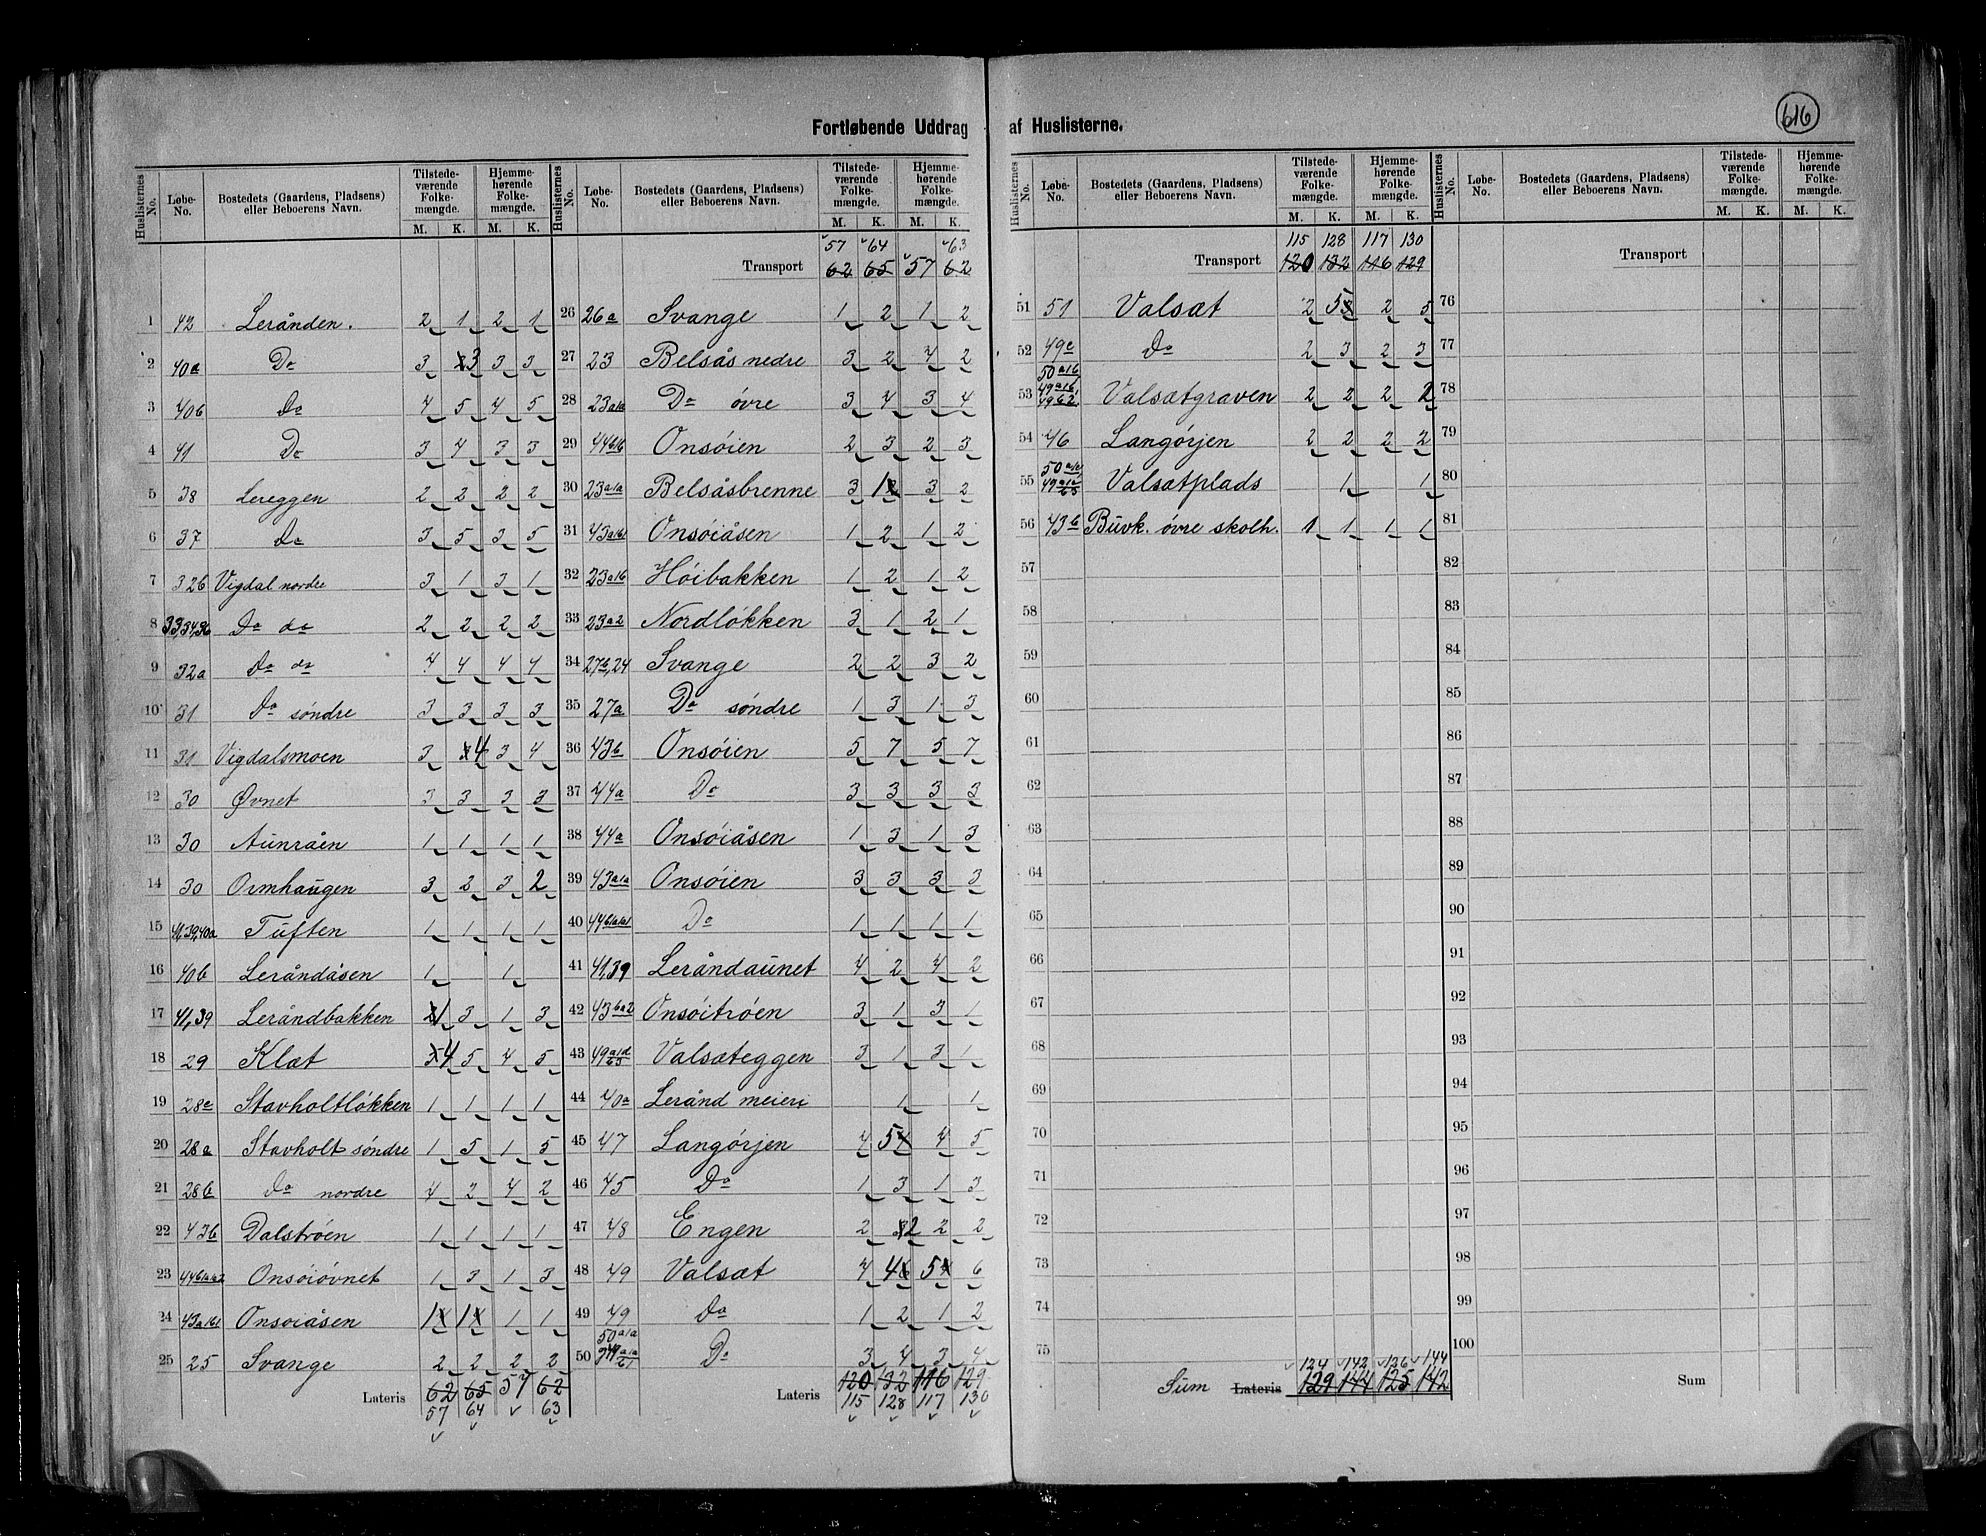 Fortløbende Uddrag af Huslisterne.
616
Huslisternes No. Løbe-No. Bostedets (Gaardens, Pladsens) eller Beboerens Navn. Tilstedeværende Folkemængde. M. K. Hjemmehørende Folkemængde. M. K.
1 42 Lerånden. 2 1 2 1
2 40a Do 3 3 3 3
3 40b Do 4 5 4 5
4 41 Do 3 4 3 3
5 38 Lereggen 2 2 2 2
6 37 Do 3 5 3 5
7 32b Vigdal nordre 3 1 3 1
8 33,34,36 Do do 2 2 2 2
9 32a Do do 4 4 4 4
10 31 Do søndre 3 3 3 3
11 31 Vigdalsmoen 3 4 3 4
12 30 Øvnet 3 3 3 3
13 30 Aunråen 1 1 1 1
14 30 Ormhaugen 3 2 3 2
15 41,39,40a Tuften 1 1 1 1
16 40b Leråndåsen 1 1
17 41,39 Leråndbakken 1 3 1 3
18 29 Klæt 4 5 4 5
19 28c Stavholtløkken 1 1 1 1
20 28a Stavholt søndre 1 5 1 5
21 28b Do nordre 4 2 4 2
22 43b Dalstrøen 1 1 1 1
23 Onsøiøvnet 1 3 1 3
24 Onsøiåsen 1 1 1 1
25 25 Svange 2 2 2 2
Lateris 62 65 57 62
57 64 63
Huslisternes No. Løbe-No. Bostedets (Gaardens, Pladsens) eller Beboerens Navn. Tilstedeværende Folkemængde. M. K. Hjemmehørende Folkemængde. M. K.
57 64 63
Transport 62 65 57 62
26 26a Svange 1 2 1 2
27 23 Belsås nedre 3 2 4 2
28 23a1a Do øvre 3 4 3 4
29 44b1b Onsøien 2 3 2 3
30 23a1a Belsåsbrenne 3 1 3 2
31 43a1b1 Onsøiåsen 1 2 1 2
32 23a1b Høibakken 1 2 1 2
33 23a2 Nordløkken 3 1 2 1
34 27b,24 Svange 2 2 3 2
35 27a Do søndre 1 3 1 3
36 43b Onsøien 5 7 5 7
37 44a Do 3 3 3 3
38 44a Onsøiåsen 1 3 1 3
39 43a1a Onsøien 3 3 3 3
40 Do 1 1 1 1
41 41,39 Leråndaunet 4 2 4 2
42 43ba2 Onsøitrøen 3 1 3 1
43 49a1d/63 Valsæteggen 3 1 3 1
44 40a Lerånd meieri 1 1
45 47 Langørjen 4 5 4 5
46 45 Do 1 3 1 3
47 48 Engen 2 2 2 2
48 49 Valsæt 4 4 5 6
49 49 Do 1 2 1 2
50 50a1a Do 3 4 3 4
Lateris 120 132 116 129
115 128 117 130
Huslisternes No. Løbe-No. Bostedets (Gaardens, Pladsens) eller Beboerens Navn. Tilstedeværende Folkemængde. M. K. Hjemmehørende Folkemængde. M. K.
115 128 117 130
Transport 120 132 116 129
51 51 Valsæt 2 5 2 5
52 49c Do 2 3 2 3
53 50a1b 49a1b 49c2 Valsætgraven 2 2 2 2
54 46 Langørjen 2 2 2 2
55 50a1c Valsætplads 1 1
56 43b Buvk. øvre skolh. 1 1 1 1
57
58
59
60
61
62
63
64
65
66
67
68
69
70
71
72
73
74
75
124 142 126 144
Sum Lateris 129 144 125 142
Huslisternes No. Løbe-No. Bostedets (Gaardens, Pladsens) eller Beboerens Navn. Tilstedeværende Folkemængde. M. K. Hjemmehørende Folkemængde. M. K.
Transport
76
77
78
79
80
81
82
83
84
85
86
87
88
89
90
91
92
93
94
95
96
97
98
99
100
Sum